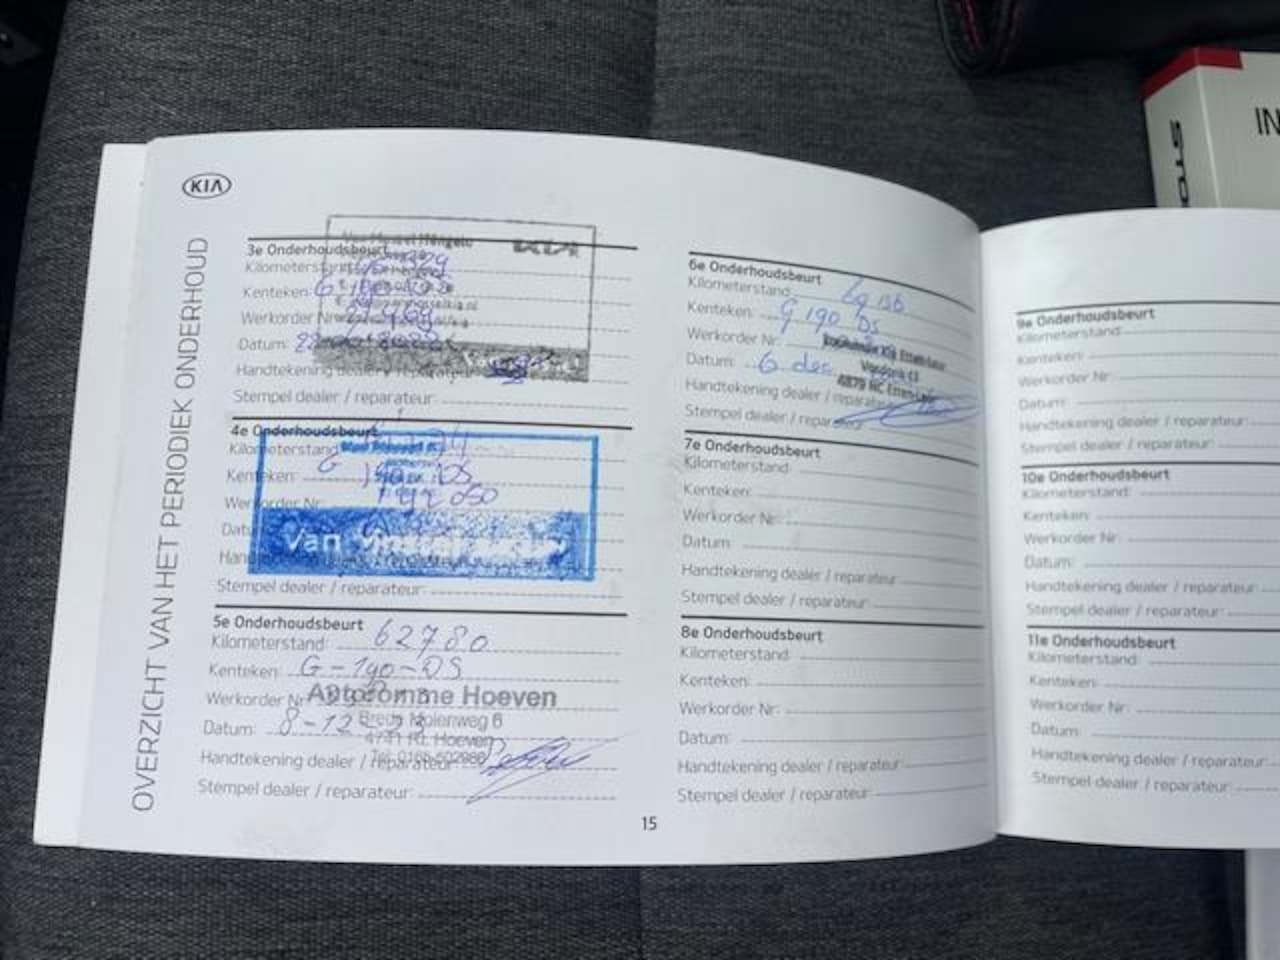 KIA
OVERZICHT VAN HET PERIODIEK ONDERHOUD
3e Onderhoudsbeurt
Kenteken: G
Werkorder Nr
Datum:
Handtekening dealer / reparateur
Stempel dealer / reparateur:
4e Onderhoudsbeurt
Kilometerstand
Kenteken: G 190 DS
Werkorder Nr:
Van
Stempel dealer / reparateur:
5e Onderhoudsbeurt
Kilometerstand: 62780
Kenteken: G-190-DS
Werkorder Nr
Autoromme Hoeven
Datum: 8-12
Breda Molenweg 6
4741 RL Hoeven
Handtekening dealer / reparateur
Stempel dealer / reparateur:
6e Onderhoudsbeurt
Kilometerstand: 69 136
Kenteken: G 190 DS
Werkorder Nr:
Kia Etten-Leur
Datum: 6 dec
4879 NC Etten-Leur
Handtekening dealer / reparateur
Stempel dealer /
7e Onderhoudsbeurt
Kilometerstand:
Kenteken:
Werkorder Nr:
Datum:
Handtekening dealer / reparateur:
Stempel dealer / reparateur:
8e Onderhoudsbeurt
Kilometerstand:
Kenteken:
Werkorder Nr:
Datum:
Handtekening dealer / reparateur:
Stempel dealer / reparateur:
15
9e Onderhoudsbeurt
Kilometerstand:
Kenteken:
Werkorder Nr:
Datum:
Handtekening dealer / reparateur:
Stempel dealer / reparateur:
10e Onderhoudsbeurt
Kilometerstand:
Kenteken:
Werkorder Nr:
Datum:
Handtekening dealer / reparateur:
Stempel dealer / reparateur:
11e Onderhoudsbeurt
Kilometerstand:
Kenteken:
Werkorder Nr:
Datum:
Handtekening dealer / reparateur:
Stempel dealer / reparateur:
IN